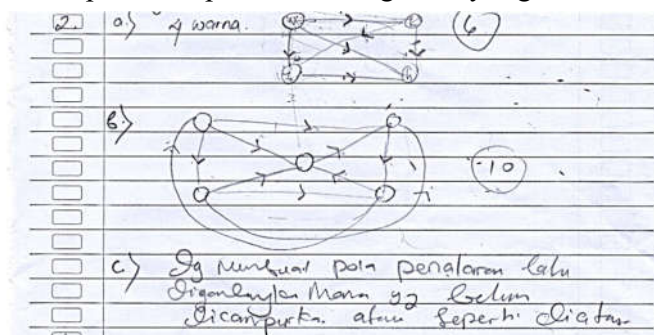 2. a.) 4 warna. 6
b.) 10
c.) Dg membuat pola penalaran lalu
digambarkan Mana yg belum
dicampurkan atau seperti diatas